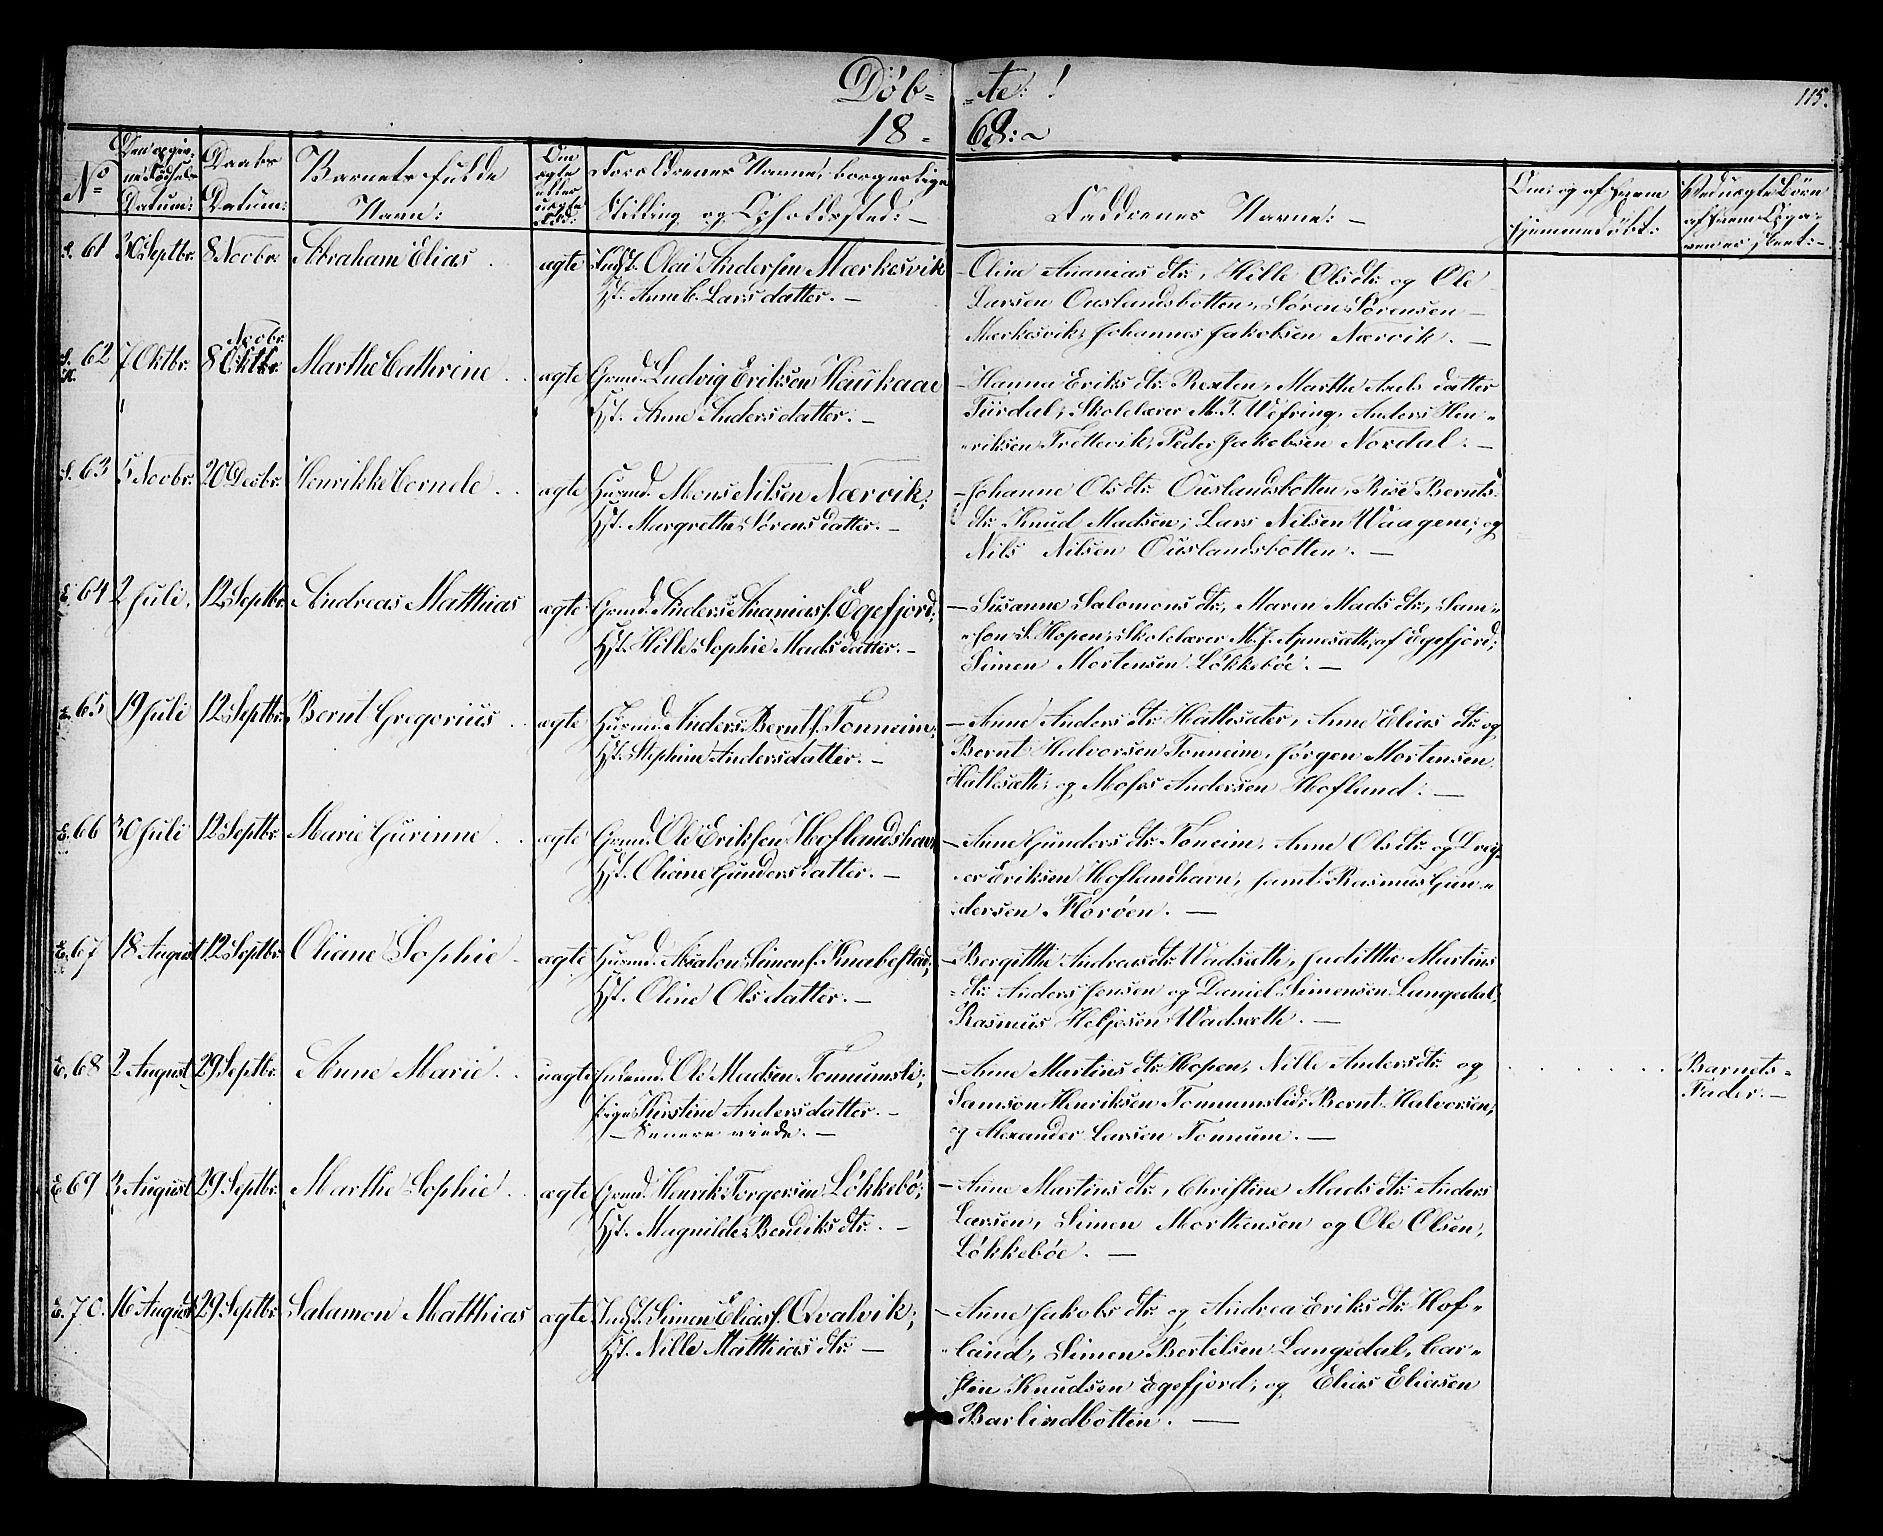 Døb- -te:!
115.
18- 68:~
No
Den opgiv-
ne Fødsels-
Datum:
Daabs
Datum:
Barnets fulde
Navn:
Om
ægte
eller
uægte
Forældrenes Navne, borgerlige
Stilling og Opholdssted: —
Faddrenes Navne: —
Om og af hvem
hjemmedøbt:
Ved uægte Børn
61 30 Septbr. 8 Novbr. Abraham Elias ægte Indst. Olai Andersen Mærkesvik
Hst. Anne C. Larsdatter. —
Oline Ananias dtr, Hille Olsdtr og Ole
Larsen Ouslandsbotten, Søren Sørensen
Mærkesvik, Johannes Jakobsen Nærvik. —
62 7 Oktbr. 8 Oktbr. Novbr. Marthe Cathrine ægte Grmd. Ludvig Eriksen Haukaae
Hst. Anne Andersdatter. —
Hanna Eriks dtr Rexten, Marthe Axels datter
Turdal, Skolelærer M. T. Wefring, Anders Hen-
-riksen Trettevik, Peder Jakobsen Nordal. —
63 5 Novbr. 20 Decbr. Henrikke Cornele ægte Huusmd. Mons Nilsen Nærvik;
Hst. Margrethe Sørensdatter. —
Johanne Ols dtr Ouslandsbotten, Rise Bernts-
dtr Knud Madsen, Lars Nilsen Waagene, og
Nils Nilsen Ouslandsbotten. —
64 2 Juli, 12 Septbr. Andreas Matthias ægte Grmd. Anders Ananiass. Egefjord;
Hst. Hille Sophie Madsdatter. —
Susanne Salomons dtr, Maren Mads dtr, Sam-
-son S. Hopen, Skolelærer M. J. af Egefjord;
Simen Mortensen Løkkebøe. —
65 19 Juli 12 Septbr. Bernt Gregorius ægte Huusmd. Anders Bernts. Tonneim;
Hst. Stephine Andersdatter. —
Anne Anders dtr, Anne Elias dtr og
Bernt Halvorsen Tonneim, Jørgen Mortensen
Hallesæth, og Moses Andersen Hofland. —
66 30 Juli 12 Septbr. Marie Gurinne ægte Grmd. Ole Eriksen Hoflandshavn
Hst. Oliane Gundersdatter. —
Anne Gunders dtr Toneim, Anne Ols dtr og
Eriksen Hoflandhavn, samt Rasmus Gun-
-dersen Florøen. —
67 18 August 12 Septbr. Oliane Sophie ægte Huusmd. Absalon Simens. Knabestad,
Hst. Oline Olsdatter. —
Bergitthe Andreas dtr Wadsæth, Judithe Martins
-dtr Anders Jensen og Daniel Simensen Langedal,
Rasmus Wadsæth. —
68 2 August 29 Septbr. Anne Marie uægte Ole Madsen Tonnumsli;
Pige Kirstine Andersdatter. —
— Senere viede. —
Anne Martins dtr Hopen, Nille Anders dtr og
Samson Henriksen Tonnumslid, Bernt Halvorsen,
og Alexander Larsen Tonnum. —
Barnets-
Fader. —
69 3 August 29 Septbr. Marthe Sophie ægte Grmd. Henrik Torgersen Løkkebø;
Hst. Magnilde Bendiks dtr. —
Anne Martins dtr, Christine Mads dtr Anders
Larsen, Simen Morthensen og Ole Olsen,
Løkkebøe. —
70. 16 August 29 Septbr. Salamon Matthias ægte Indst. Simen Eliass. Qvalvik;
Hst. Nille Matthias dtr —
Anne Jakobs dtr og Andrea Eriks dtr Hof-
-land, Simen Bertelsen Langedal, Car-
sten Knudsen Egefjord, og Elias Eliasen
Barlindbotten. —